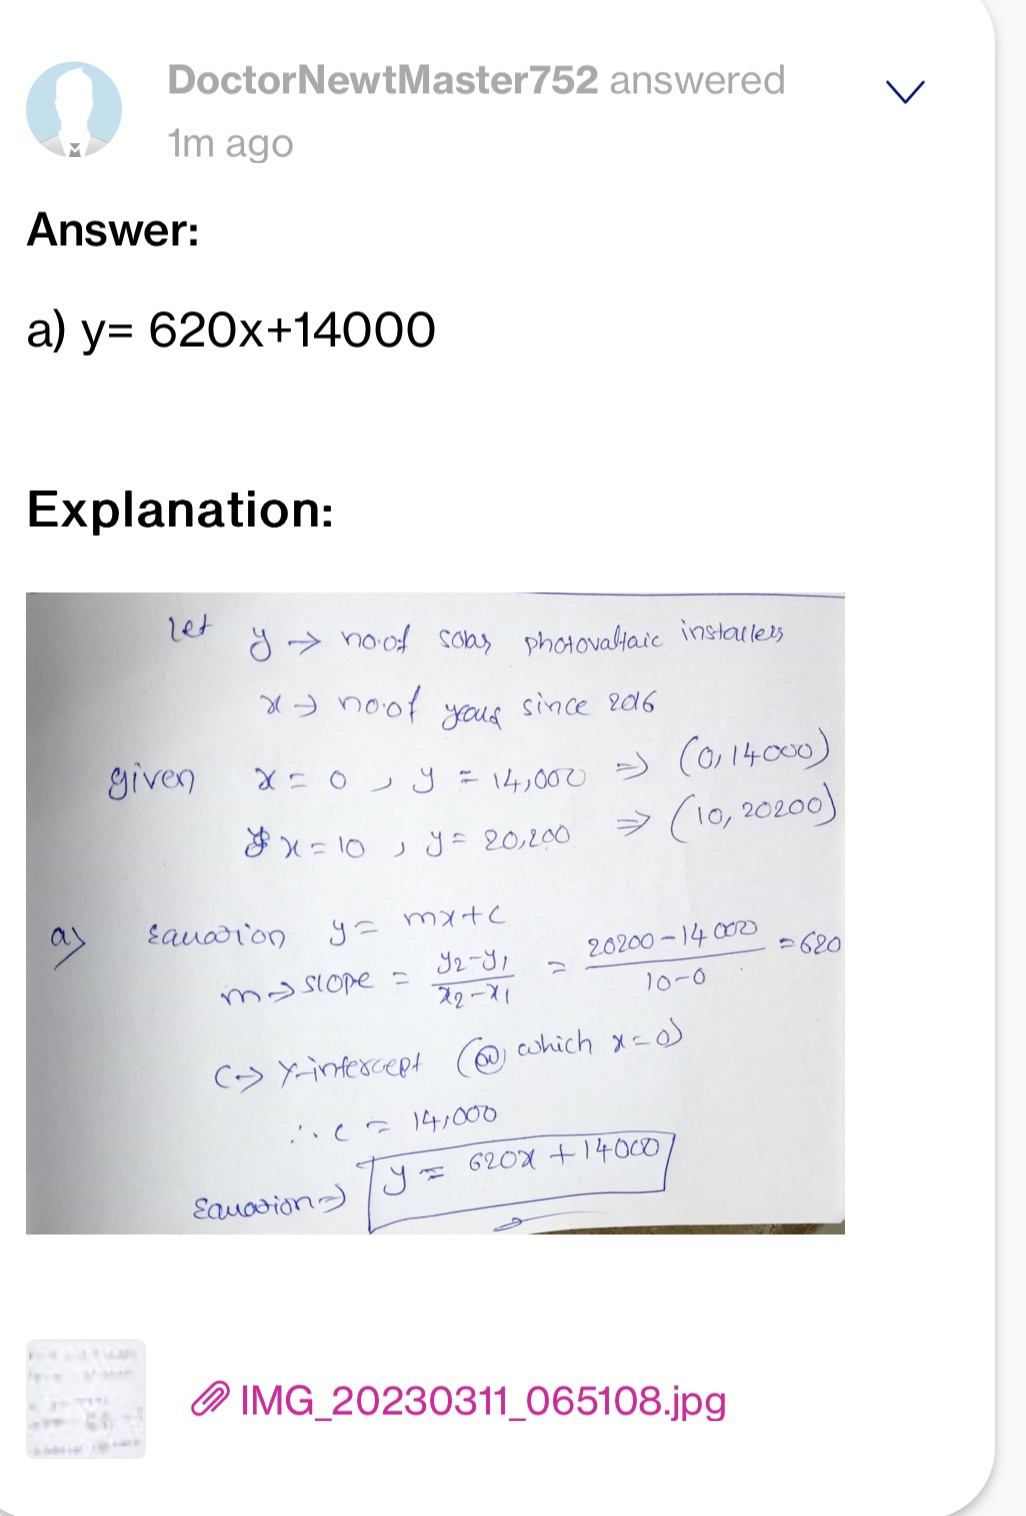 DoctorNewtMaster752 answered
1m ago
Answer:
a) y= 620x+14000
Explanation:
let y → no.of solar photovoltaic installers
x → no.of years since 2016
given x = 0 , y = 14,000 ⇒ (0,14000)
x = 10 , y = 20,200 ⇒ (10, 20200)
a) Equation y = mx+c
m → slope = y2-y1 / x2-x1 = 20200-14000 / 10-0 = 620
c → y-intercept (@ which x=0)
∴ c = 14,000
Equation ⇒ y = 620x + 14000
IMG_20230311_065108.jpg